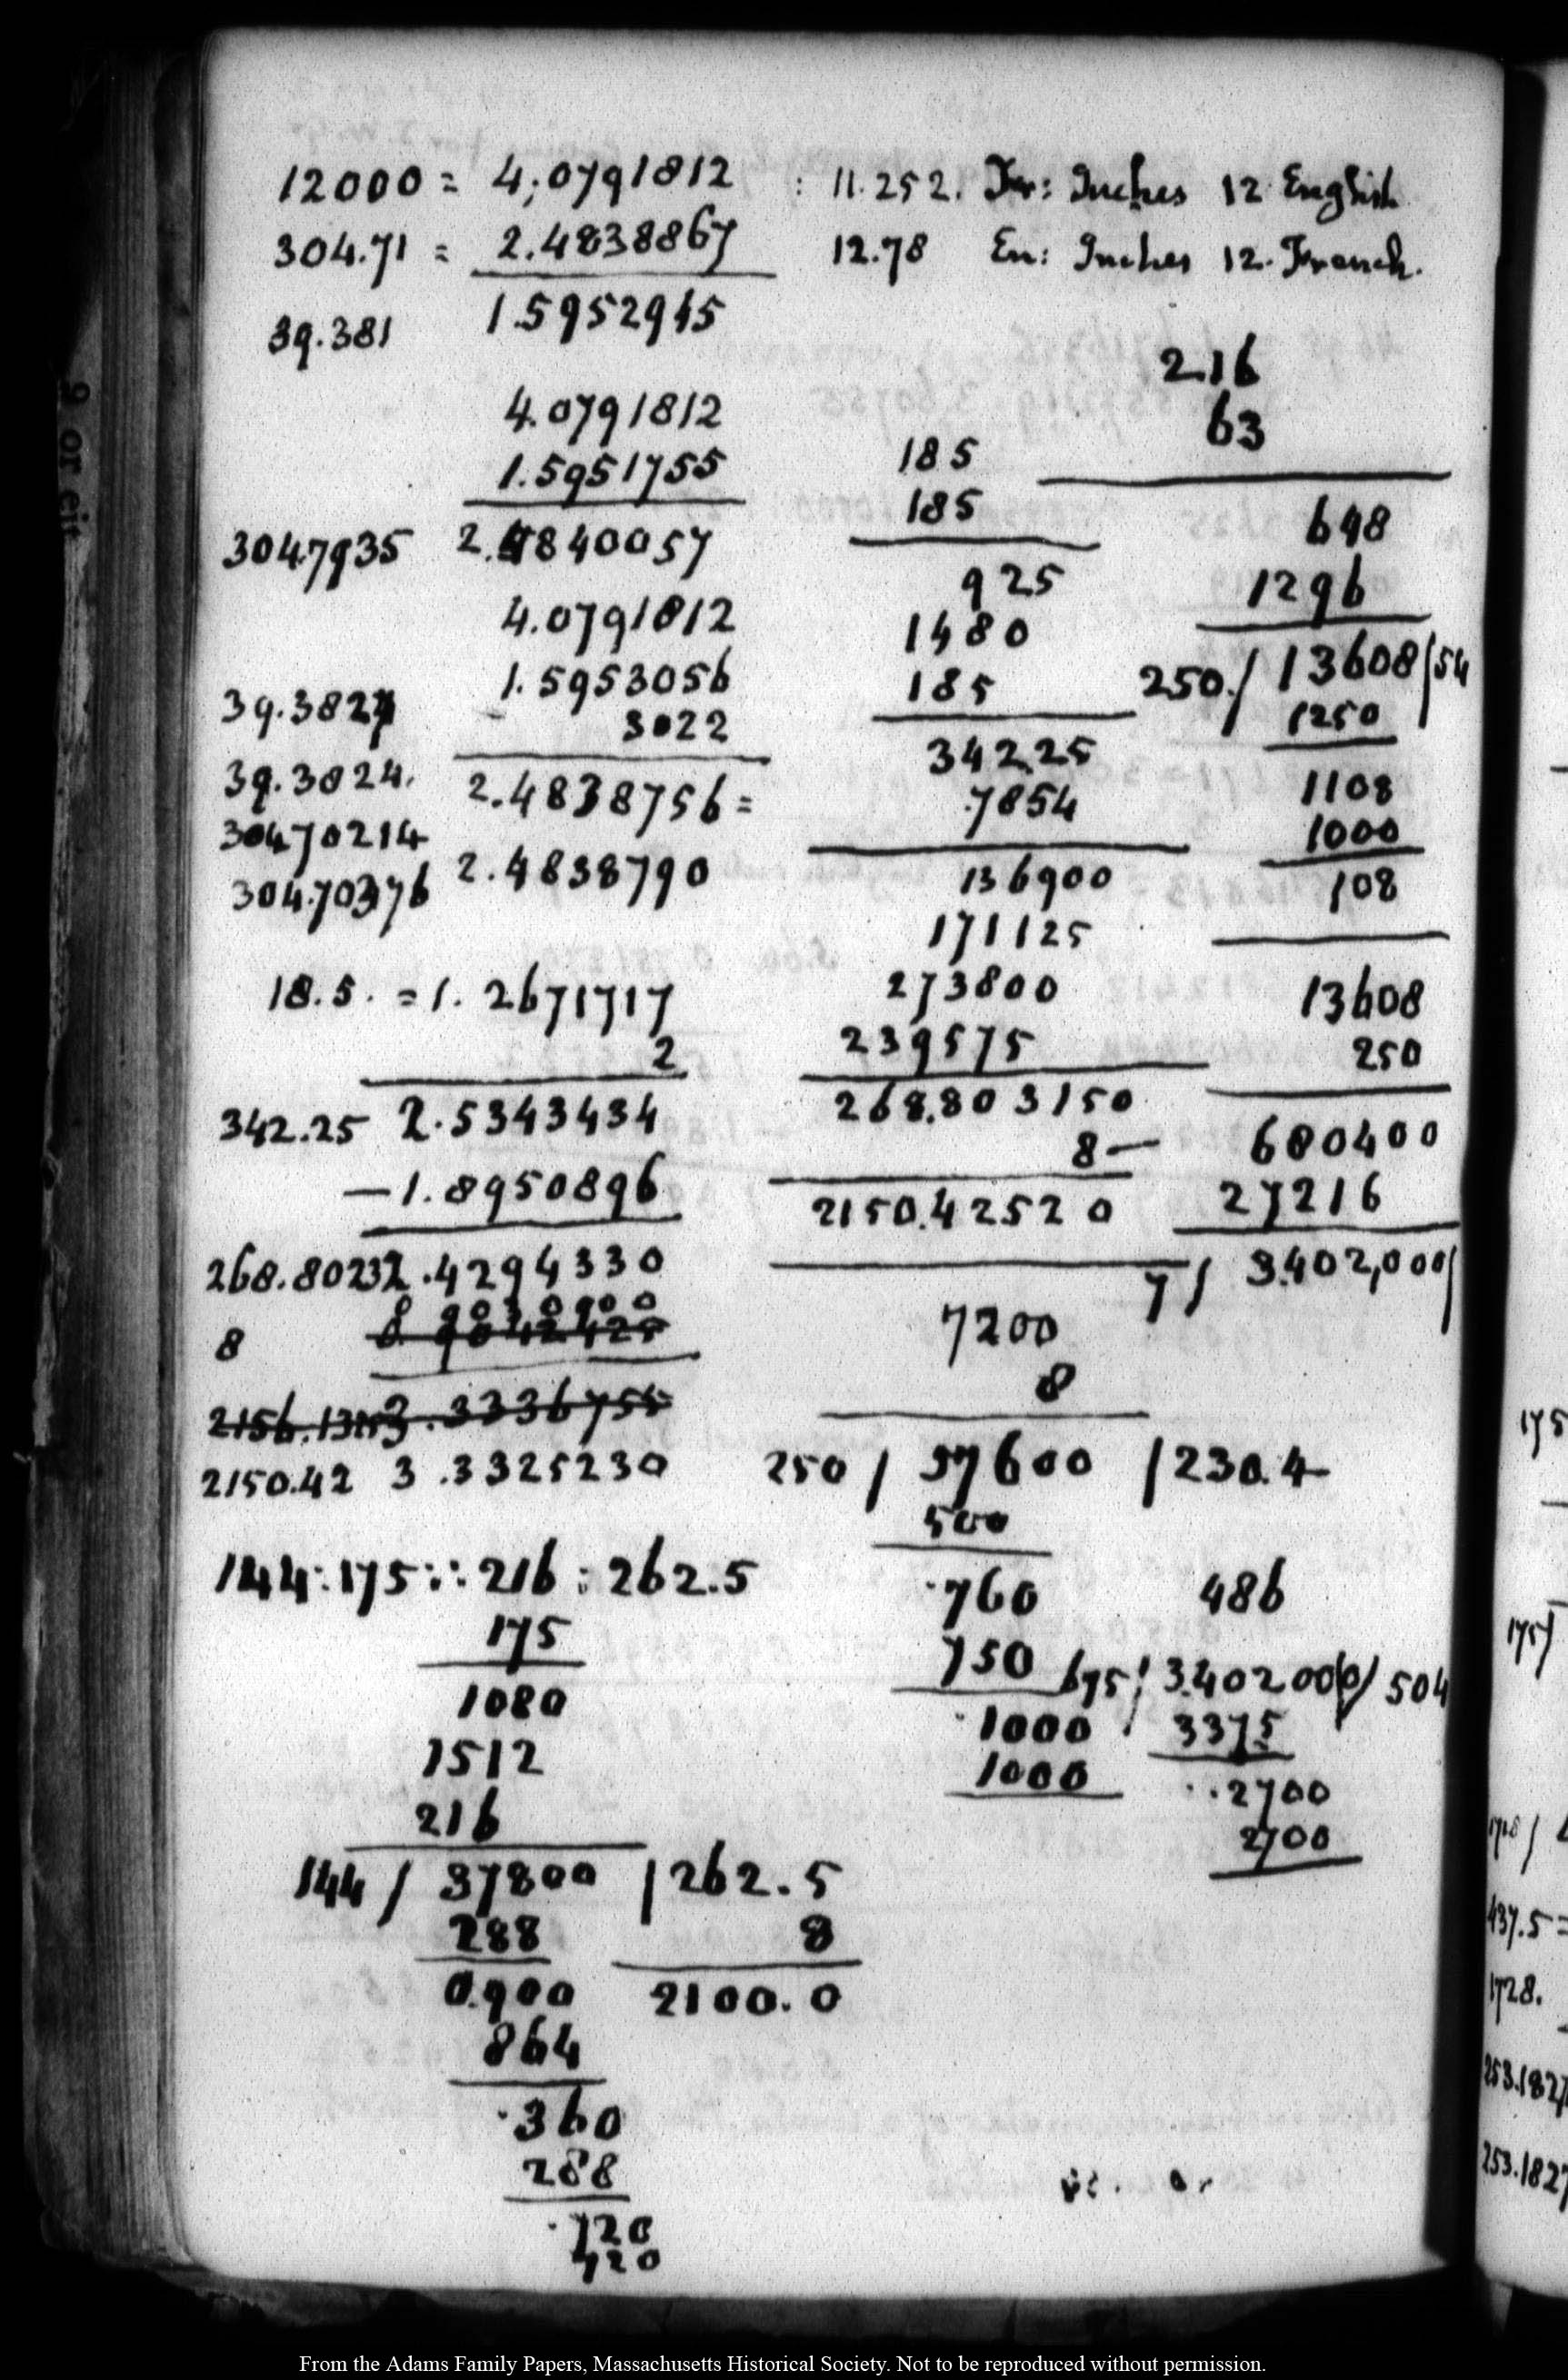 12000 = 4,0791812
304.71 = 2.4838867
39.381 1.5952945
4.0791812
1.5951755
304.7935 2.4840057
4.0791812
39.3824 1.5953056
3022
39.3824. 2.4838756 =
304.70214
304.70376 2.4838790
18.5. = 1.2671717
2
342.25 2.5343434
— 1.8950896
268.8023 2.4294330
0 9030900
8
2150.42 3.3325230
144 : 175 :: 216 : 262.5
175
1080
1512
216
144 / 37800 / 262.5
288 8
0.900 2100.0
864
.360
288
.720
720
: 11.252. Fr: Inches 12 English
12.78 En: Inches 12. French.
185
185
925
1480
185
342.25
.7854
136900
171125
273800
239575
268.803150
8 —
2150.42520
7200
8
250 / 57600 / 230.4
500
.760
750
.1000
1000
216
63
648
1296
250. / 13608 / 54
1250
1108
1000
108
13608
250
680400
27216
7 / 3.402,000 /
486
675 / 3.402000 / 504
3375
..2700
2700
9 or eit
175
175/
1728 /
437.5 =
1728.
253.1827
253.1827
From the Adams Family Papers, Massachusetts Historical Society. Not to be reproduced without permission.